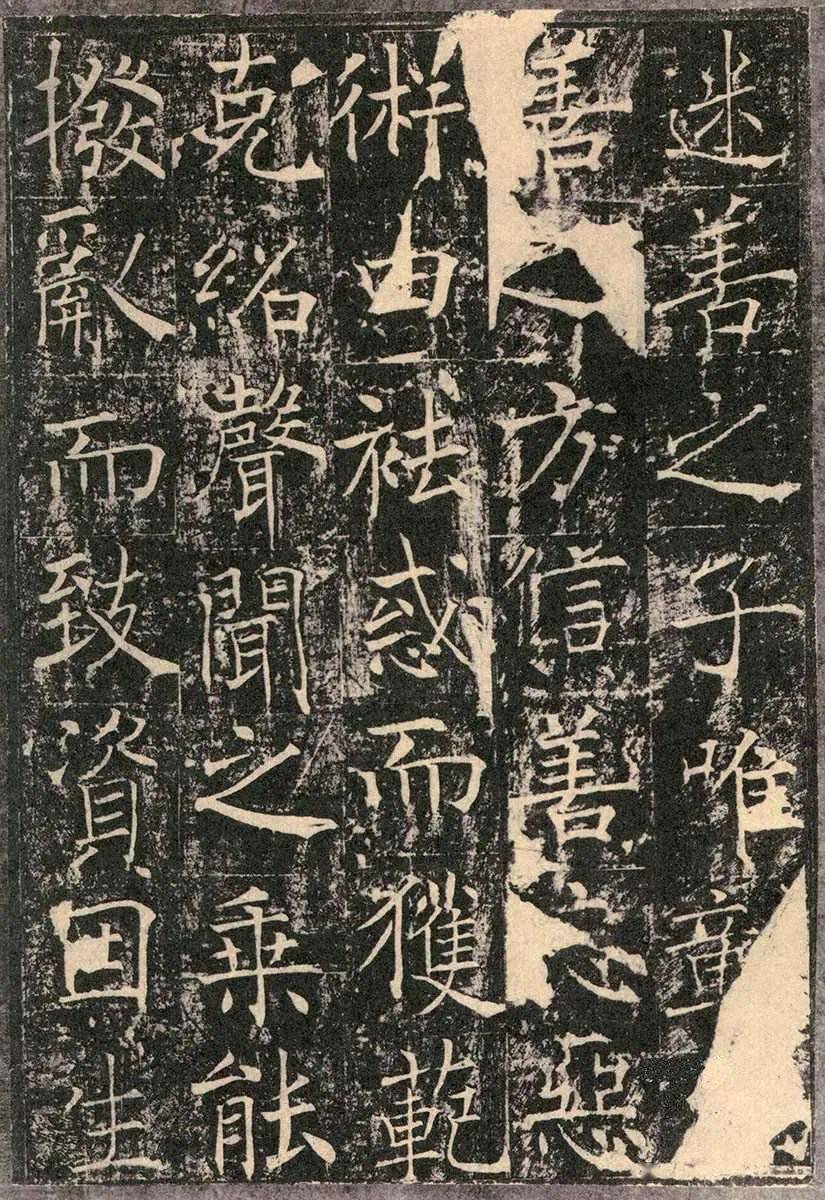 迷善之子唯童
善之方信善之惡
術由祛惑而獲範
克紹聲聞之乗能
撥亂而致資因生